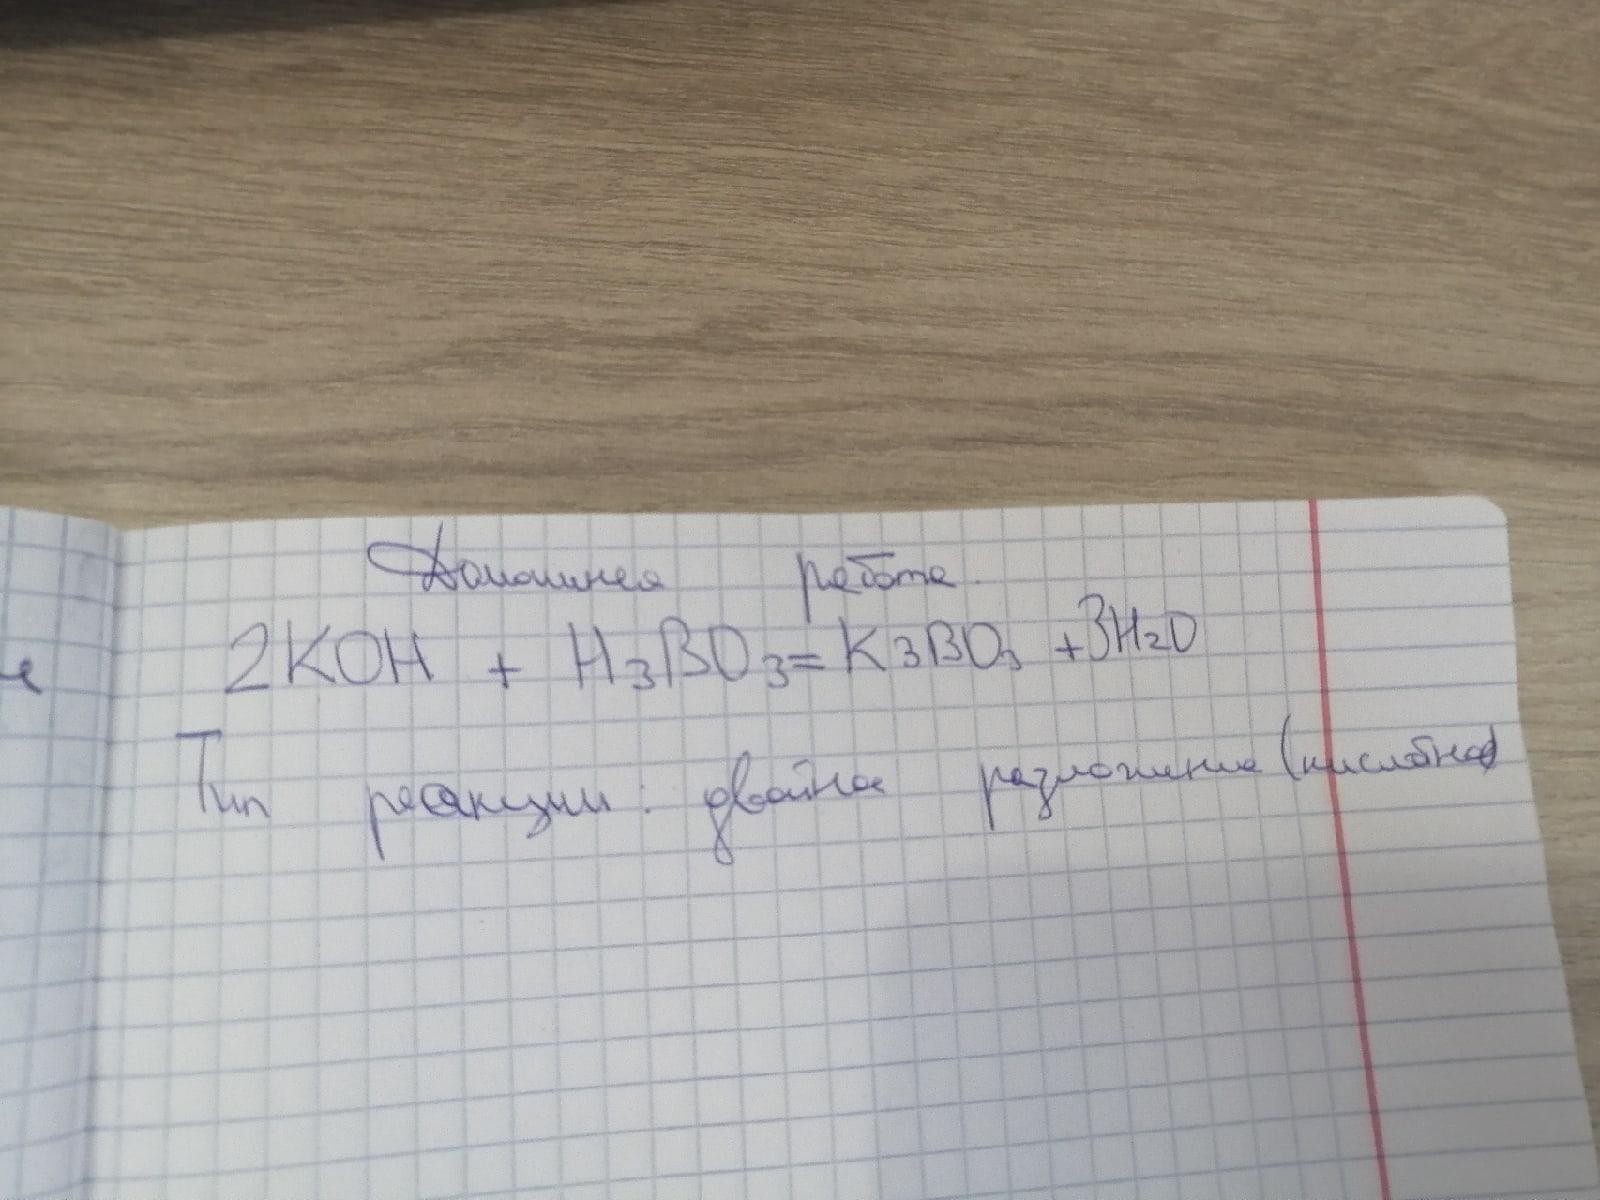 Домашняя работа.
2KOH + H3BO3 = K3BO3 + 3H2O
Тип реакции: двойное разложение (кислотное)